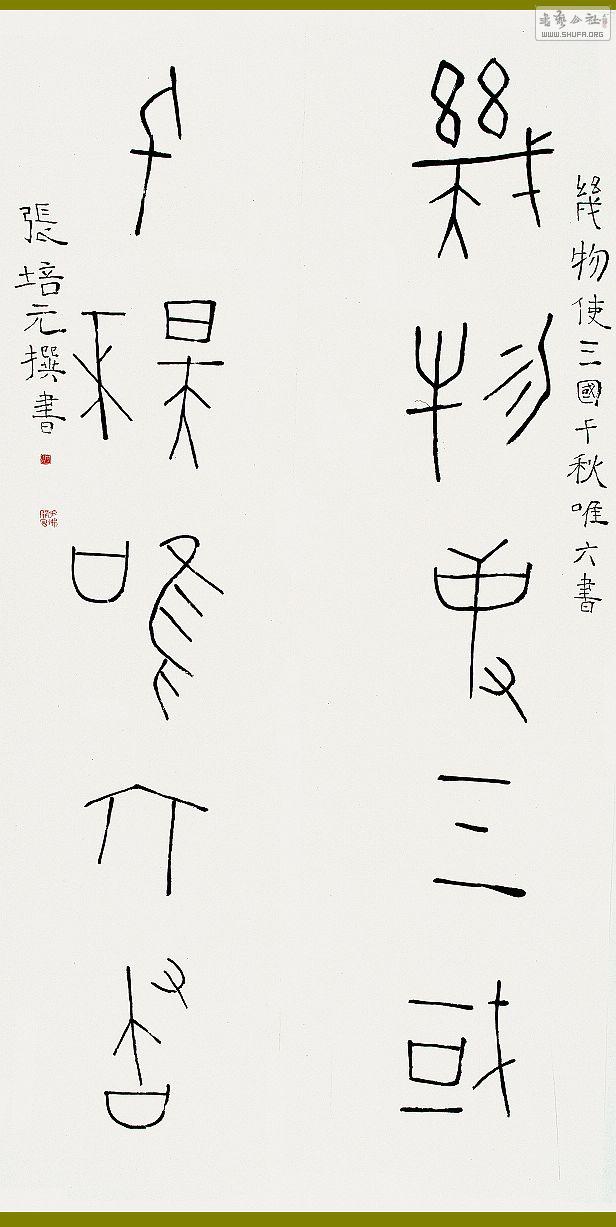 书艺公社
WWW.SHUFA.ORG
幾物使三國千秋唯六書
幾物使三國
千秋唯六書
張培元撰書